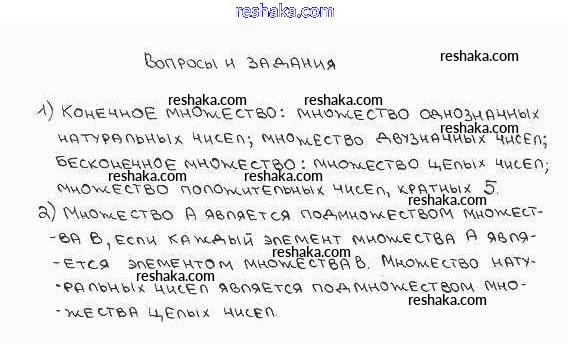 reshaka.com
Вопросы и задания
reshaka.com
reshaka.com reshaka.com
1) Конечное множество: множество однозначных
reshaka.com
натуральных чисел; множество двузначных чисел;
бесконечное множество: множество целых чисел;
reshaka.com reshaka.com
множество положительных чисел, кратных 5.
2) Множество А является подмножеством множест-
reshaka.com
-ва В, если каждый элемент множества А явля-
reshaka.com
-ется элементом множества В. Множество нату-
reshaka.com
-ральных чисел является подмножеством мно-
reshaka.com
-жества целых чисел.